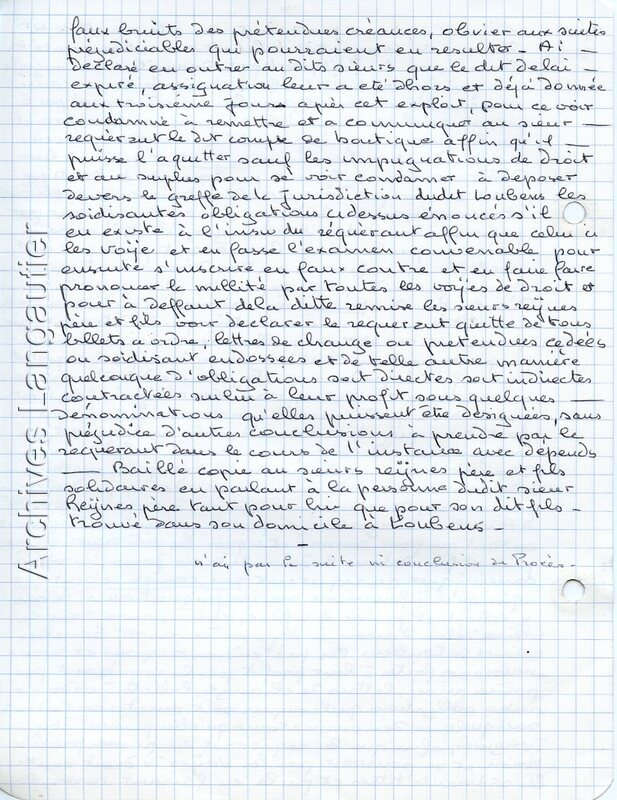 faux bruits des prétendues créances, obvier aux suites
préjudiciables qui pourraient en resulter - Ai -
Declaré en outrer au dits sieurs que le dit delai -
expiré, assignation leur a eté dhors et déjà donnée
aux troisième Jours après cet exploit, pour ce voir
condamné à remettre et a communiquer au sieur -
requérant le dit compte de boutique affin qu'il -
puisse l'aquitter sauf les impugnations de droit
et au suplus pour se voir condamner à deposer
devers le greffe de la jurisdiction dudit Loubens les
soidisantes obligations cidessus énoncés s'il
en existe à l'insu du réquérant affin que celui ci
les voije et en fasse l'examen convenable pour
ensuite s'inscrire en faux contre et en faire faire
prononcer la nullité par toutes les voijes de droit et
pour à deffaut dela ditte remise les sieurs reijnes
père et fils voir declarer le requerant quitte de tous
billets a ordre, lettres de change ou prétendues cedées
ou soidisant endossées et de telle autre manière
quelconque d'obligations soit directes soit indirectes
contractées à leur profit sous quelques -
Dénominations qu'elles puissent etre designées, sans
préjudice d'autres conclusions a prendre par le
requerant dans le cours de l'instance avec depends
- Baillé copie au sieurs reijnes père et fils
solidaires en parlant à la personne dudit sieur
Reijnes père tant pour lui que pour son dit fils -
trouvé dans son domicile à Loubens -
n'ai pas la suite ni conclusion du Procès -
Archives Langautier